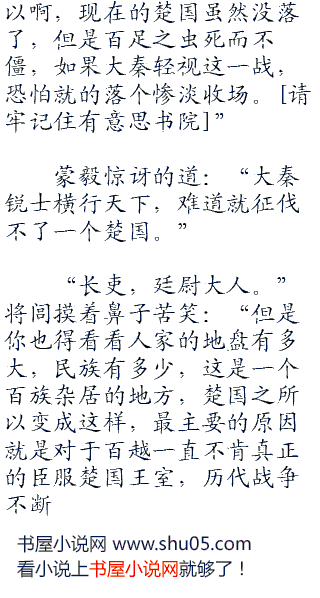 以啊，现在的楚国虽然没落
了，但是百足之虫死而不
僵，如果大秦轻视这一战，
恐怕就的落个惨淡收场。[请
牢记住有意思书院]”
蒙毅惊讶的道：“大秦
锐士横行天下，难道就征伐
不了一个楚国。”
“长吏，廷尉大人。”
将闾摸着鼻子苦笑：“但是
你也得看看人家的地盘有多
大，民族有多少，这是一个
百族杂居的地方，楚国之所
以变成这样，最主要的原因
就是对于百越一直不肯真正
的臣服楚国王室，历代战争
不断
书屋小说网 www.shu05.com
看小说上书屋小说网就够了！